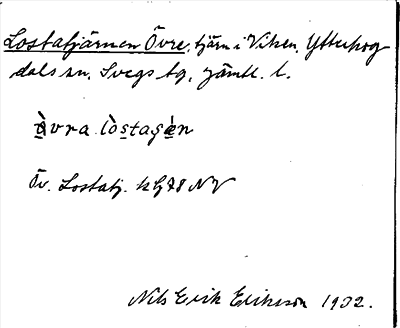 Lostatjärnen Övre, tjärn i Viken, Ytterhog
dals sn, Svegs tg, Jämtl. l.
övra lòstaşèn
Öv. Lostatj. kg 78 NV
Nils Erik Eriksson 1932.